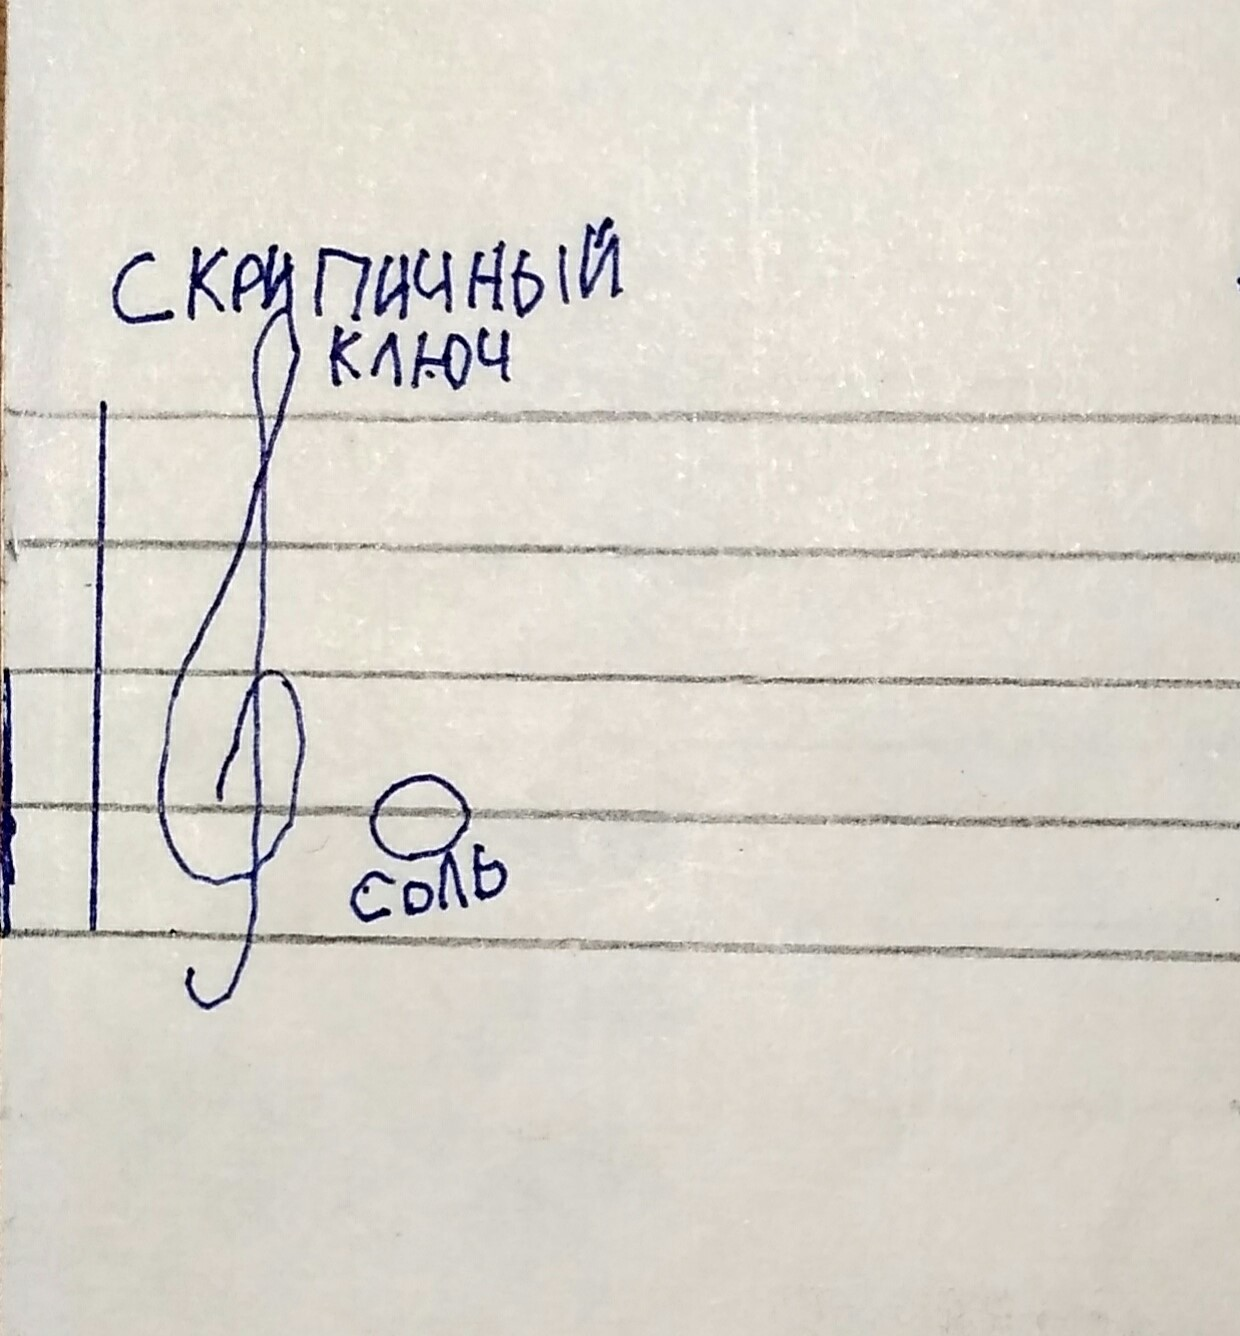 СКРИПИЧНЫЙ
КЛЮЧ
СОЛЬ